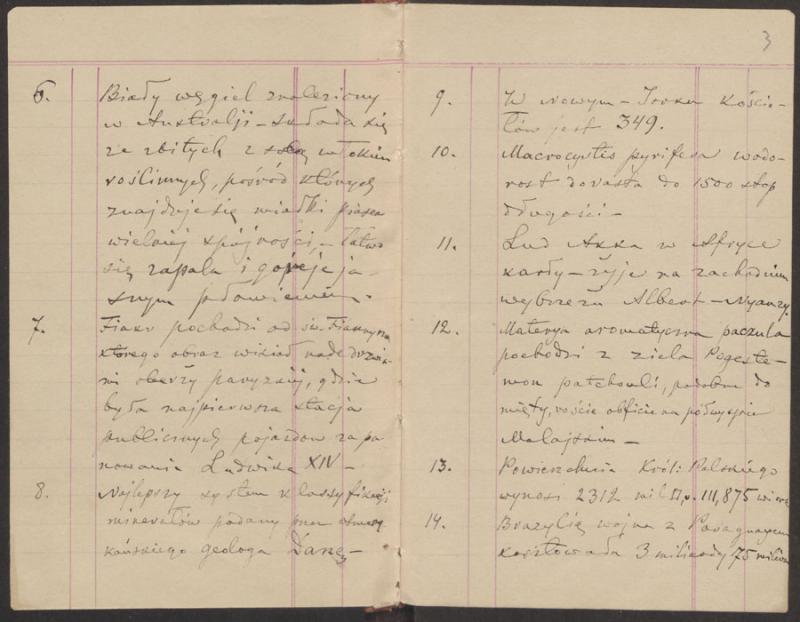 3
6. Biały węgiel znaleziony
w Australji – składa się
ze zbitych z sobą włókien
roślinnych, pośród których
znajduje się miałki piasek
wielkiej spójności, – łatwo
się zapala i goreje ja-
snym płomieniem.
7. Fiakr pochodzi od św. Fiakryusza
którego obraz wisiał nade drzwia-
mi oberży paryzkiej, gdzie
była najpierwsza stacja
publicznych pojazdow za pa-
nowania Ludwika XIV –
8. Najlepszy system klassyfikacji
minerałów podany przez amery-
kańskiego geologa Danę –
9. W Nowym – Jorku kościo-
łów jest 349.
10. Macrocystis pyrifera wodo-
rost dorasta do 1500 stop
długości –
11. Lud Akka w Afryce
karły – żyje na zachodniem
wybrzeżu Albert – Nyanzy.
12. Materya aromatyczna paczula
pochodzi z ziela Pogoste-
mon patchouli, podobne do
mięty, rośnie obficie na półwyspie
Malajskim –
13. Powierzchnia Król: Polskiego
wynosi 2312 mil □, 111,875 wiorst
14. Brazylię wojna z Paragwajem
kosztowała 3 miliardy 75 milionów